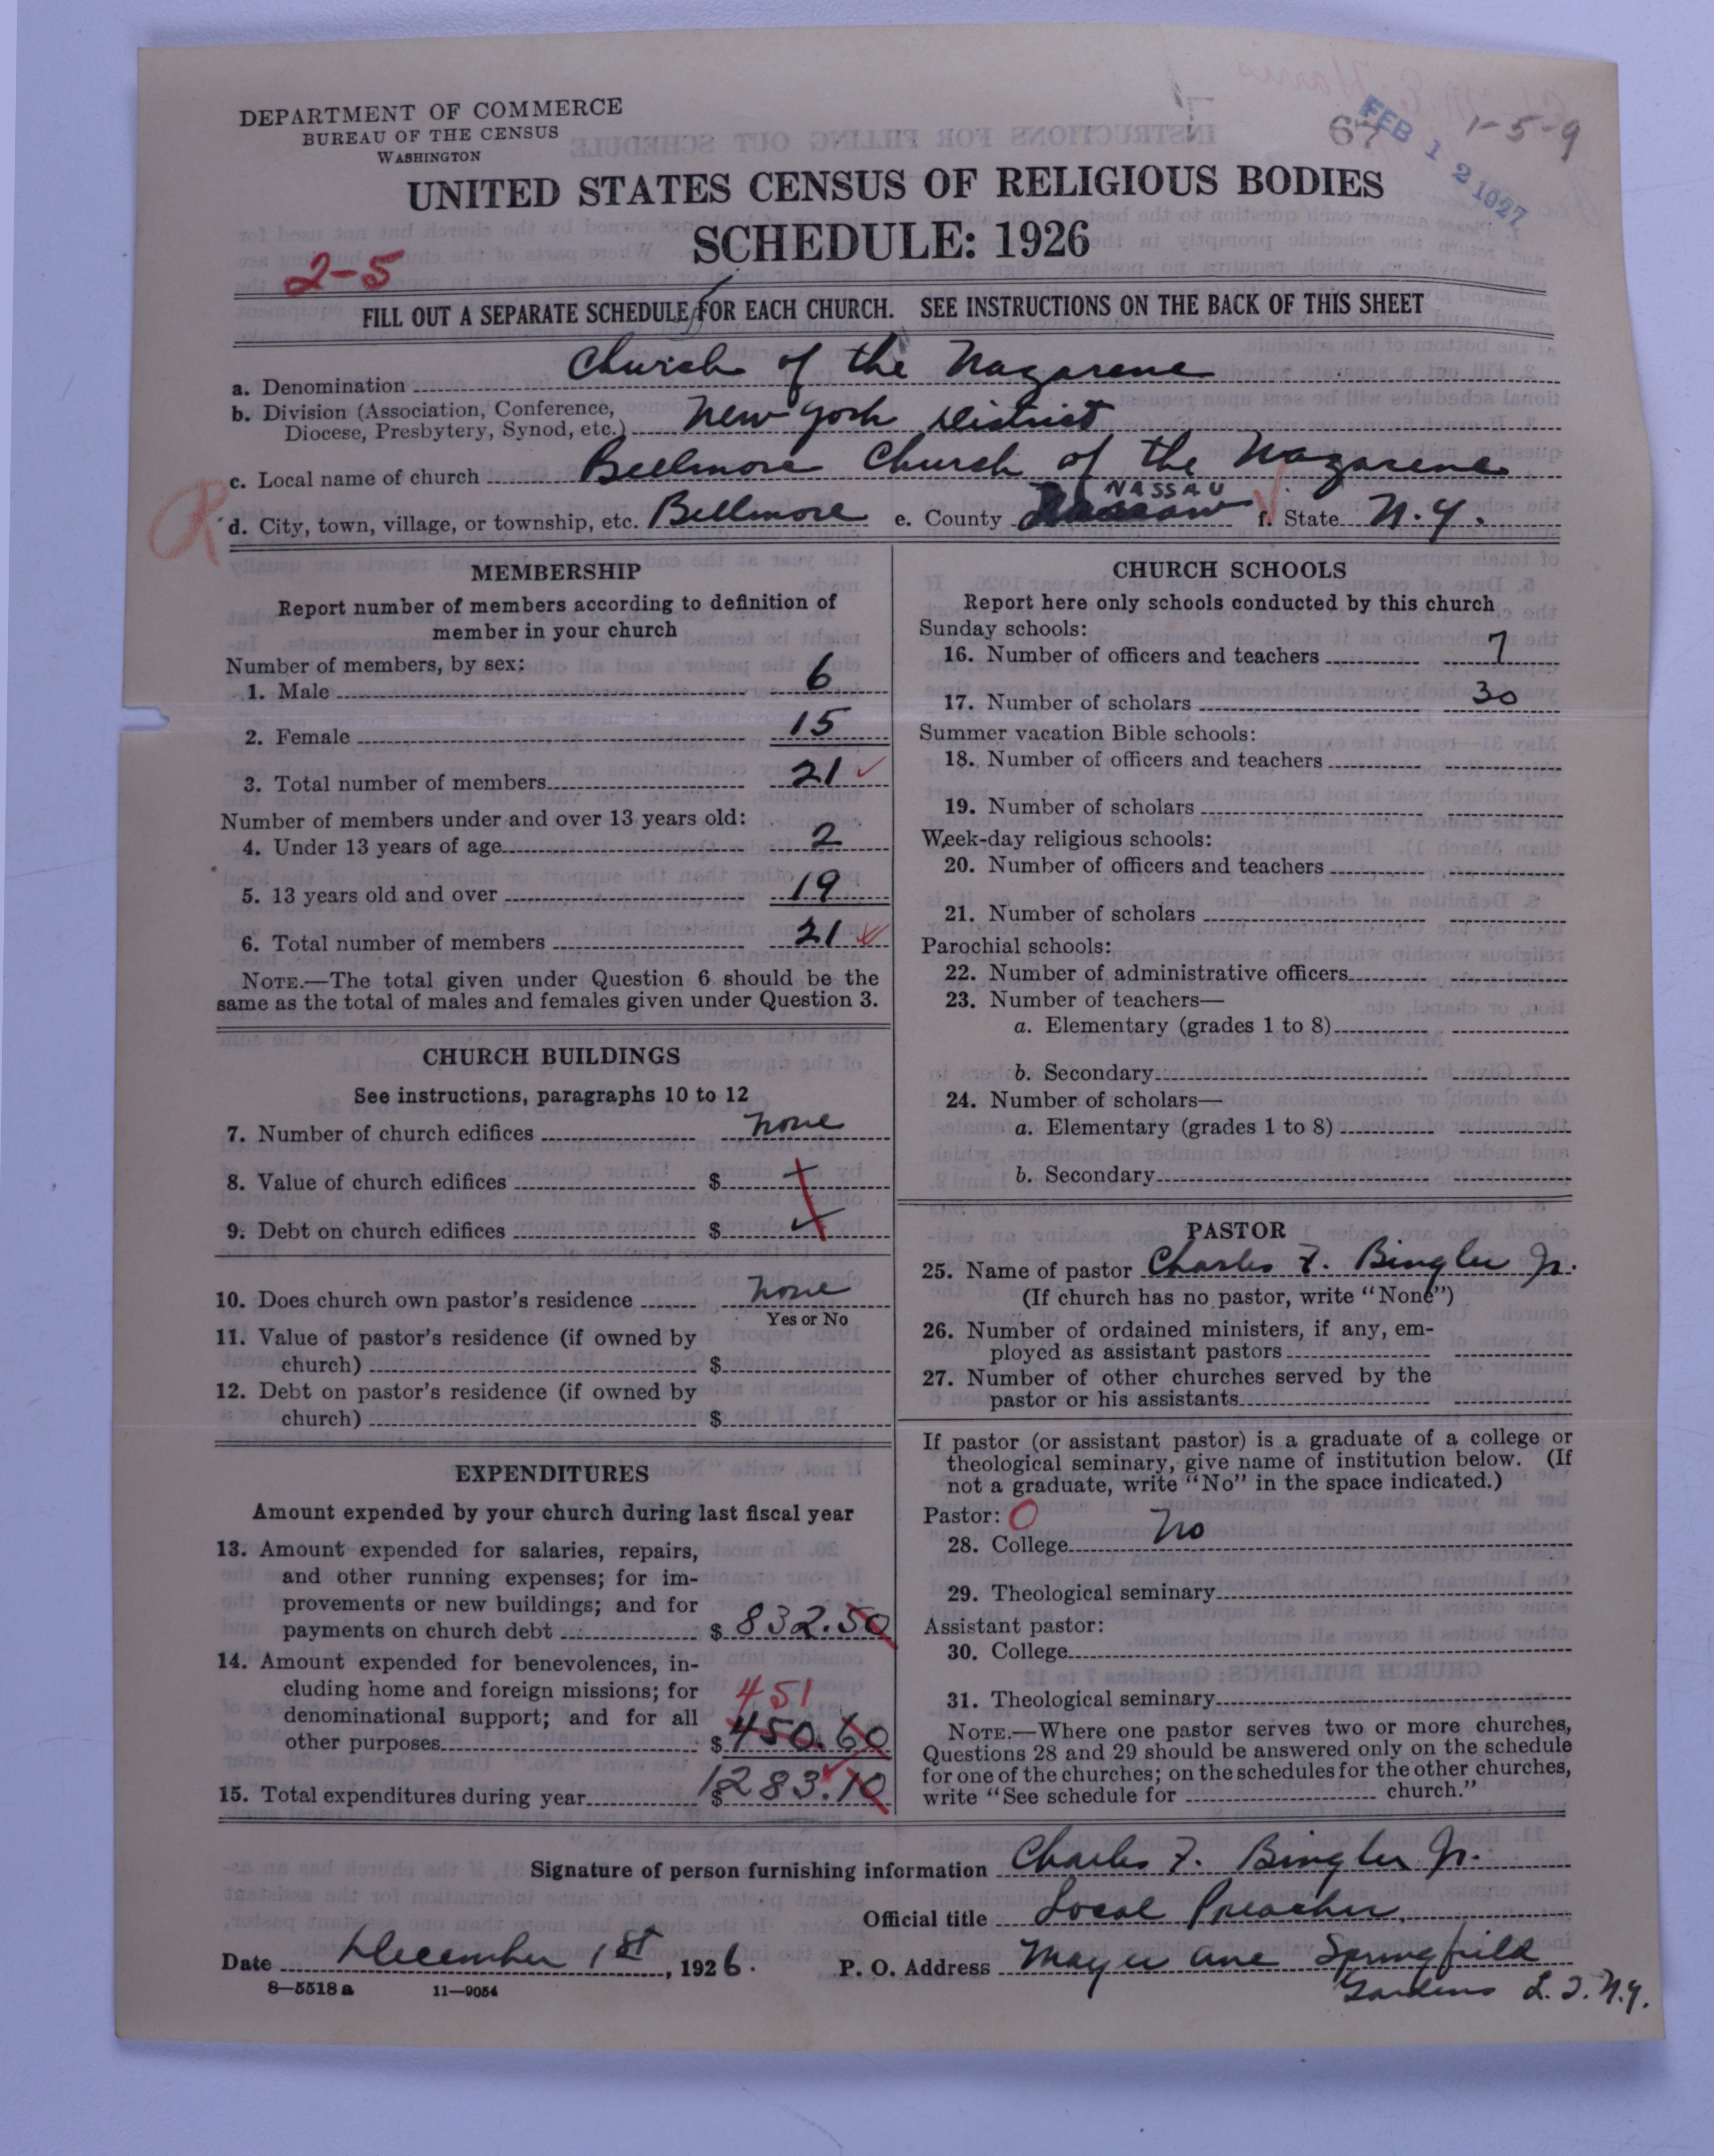 DEPARTMENT OF COMMERCE
BUREAU OF THE CENSUS
WASHINGTON
67
FEB 12 1927
1-5-9
UNITED STATES CENSUS OF RELIGIOUS BODIES
SCHEDULE: 1926
2-5
FILL OUT A SEPARATE SCHEDULE FOR EACH CHURCH. SEE INSTRUCTIONS ON THE BACK OF THIS SHEET
a. Denomination Church of the Nazarene
b. Division (Association, Conference, Diocese, Presbytery, Synod, etc.) New York District
c. Local name of church Bellmore Church of the Nazarene
R
d. City, town, village, or township, etc. Bellmore e. County NASSAU f. State N.Y.
MEMBERSHIP
Report number of members according to definition of
member in your church
Number of members, by sex:
1. Male 6
2. Female 15
3. Total number of members 21 ✓
Number of members under and over 13 years old:
4. Under 13 years of age 2
5. 13 years old and over 19
6. Total number of members 21 ✓
NOTE.—The total given under Question 6 should be the
same as the total of males and females given under Question 3.
CHURCH BUILDINGS
See instructions, paragraphs 10 to 12
7. Number of church edifices none
8. Value of church edifices $
9. Debt on church edifices $
10. Does church own pastor's residence none
Yes or No
11. Value of pastor's residence (if owned by
church) $
12. Debt on pastor's residence (if owned by
church) $
EXPENDITURES
Amount expended by your church during last fiscal year
13. Amount expended for salaries, repairs,
and other running expenses; for im-
provements or new buildings; and for
payments on church debt $ 832.50
14. Amount expended for benevolences, in-
cluding home and foreign missions; for
denominational support; and for all 451
other purposes $ 450.60
15. Total expenditures during year $ 1283.10
CHURCH SCHOOLS
Report here only schools conducted by this church
Sunday schools:
16. Number of officers and teachers 7
17. Number of scholars 30
Summer vacation Bible schools:
18. Number of officers and teachers
19. Number of scholars
Week-day religious schools:
20. Number of officers and teachers
21. Number of scholars
Parochial schools:
22. Number of administrative officers
23. Number of teachers—
a. Elementary (grades 1 to 8)
b. Secondary
24. Number of scholars—
a. Elementary (grades 1 to 8)
b. Secondary
PASTOR
25. Name of pastor Charles F. Bingler Jr.
(If church has no pastor, write "None")
26. Number of ordained ministers, if any, em-
ployed as assistant pastors
27. Number of other churches served by the
pastor or his assistants
If pastor (or assistant pastor) is a graduate of a college or
theological seminary, give name of institution below. (If
not a graduate, write "No" in the space indicated.)
Pastor: O
28. College No
29. Theological seminary
Assistant pastor:
30. College
31. Theological seminary
NOTE.—Where one pastor serves two or more churches,
Questions 28 and 29 should be answered only on the schedule
for one of the churches; on the schedules for the other churches,
write "See schedule for church."
Signature of person furnishing information Charles F. Bingler Jr.
Official title Local Preacher
Date December 1st, 1926. P. O. Address Mayer ave Springfield
Gardens L.I. N.Y.
8—5518 a 11—9054